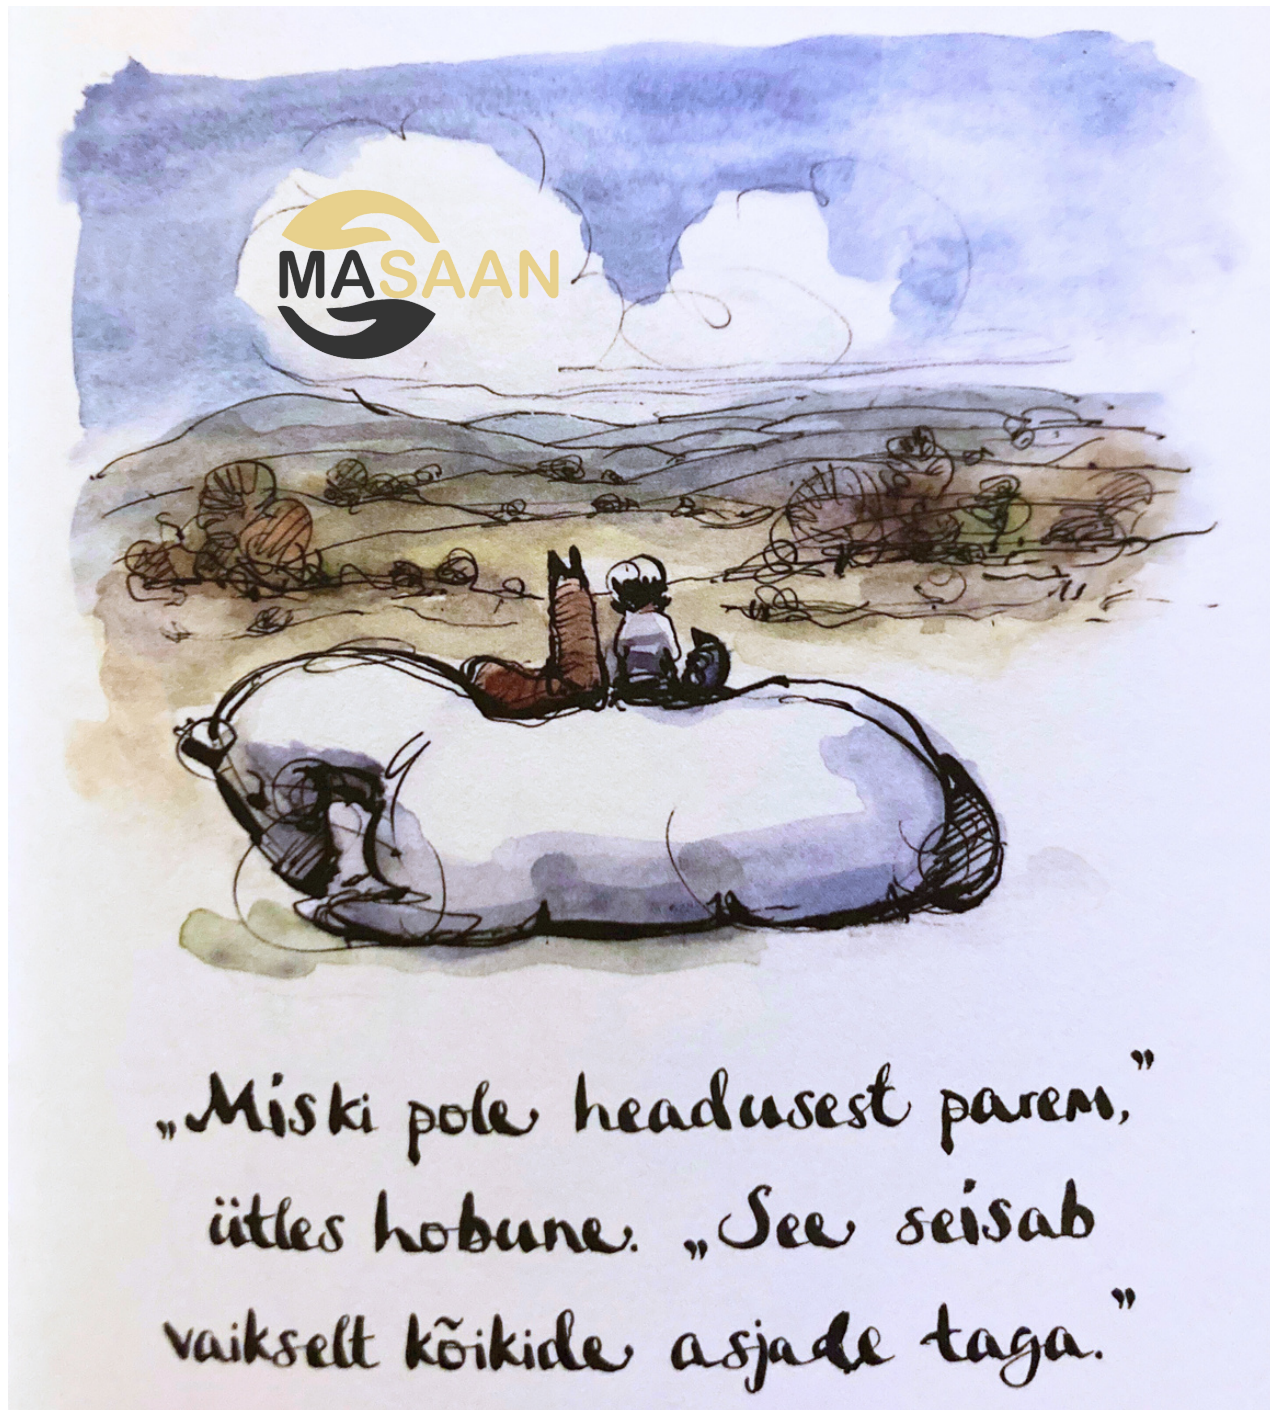 MASAAN
„Miski pole headusest parem,”
ütles hobune. „See seisab
vaikselt kõikide asjade taga.”